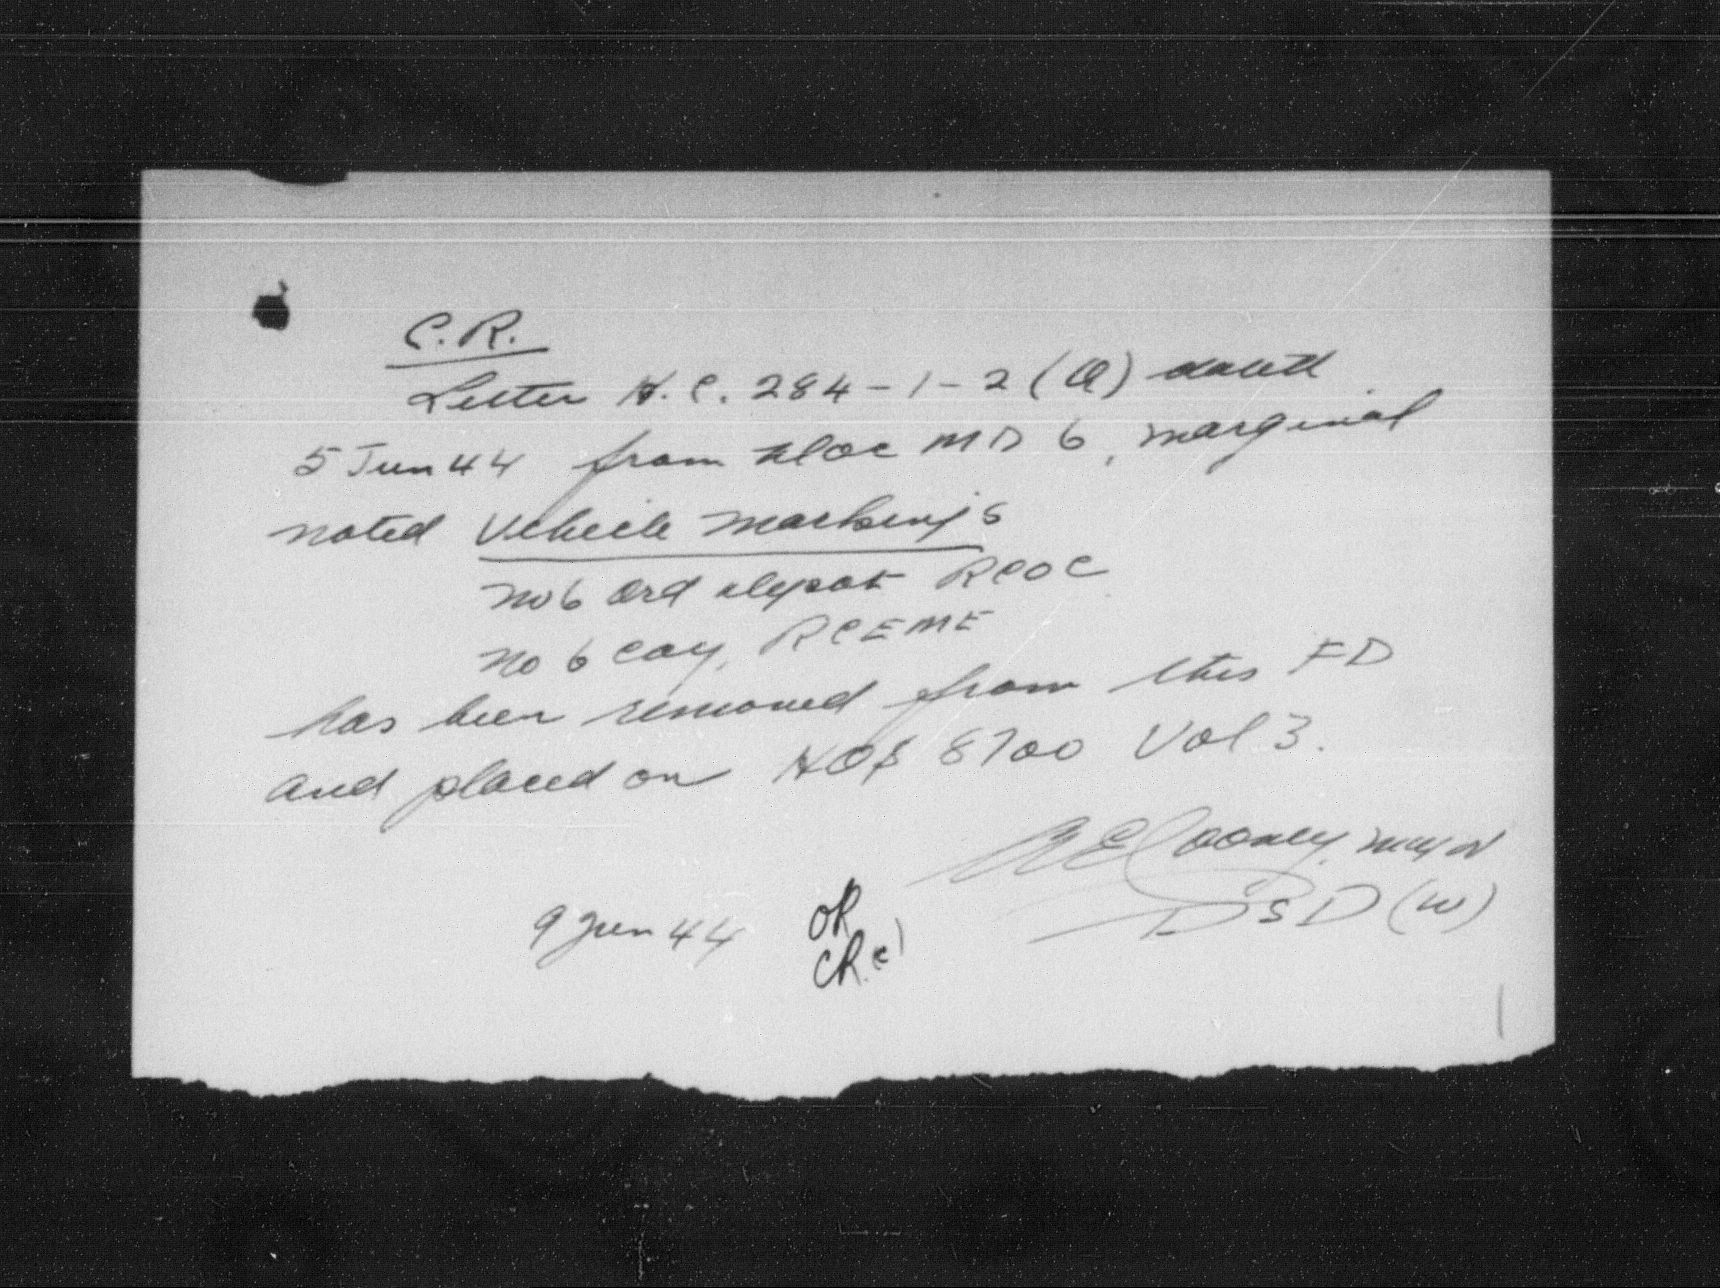 C.R.
Letter H.C. 284-1-2 (Q) dated
5 Jun 44 from DOC MD 6, marginal
noted Vehicle Markings
No 6 Ord depot RCOC
No 6 Coy, RCEME
has been removed from this FD
and placed on HQS 8700 Vol 3.
Cooney, Major
DSD (W)
9 Jun 44
OK
CR.